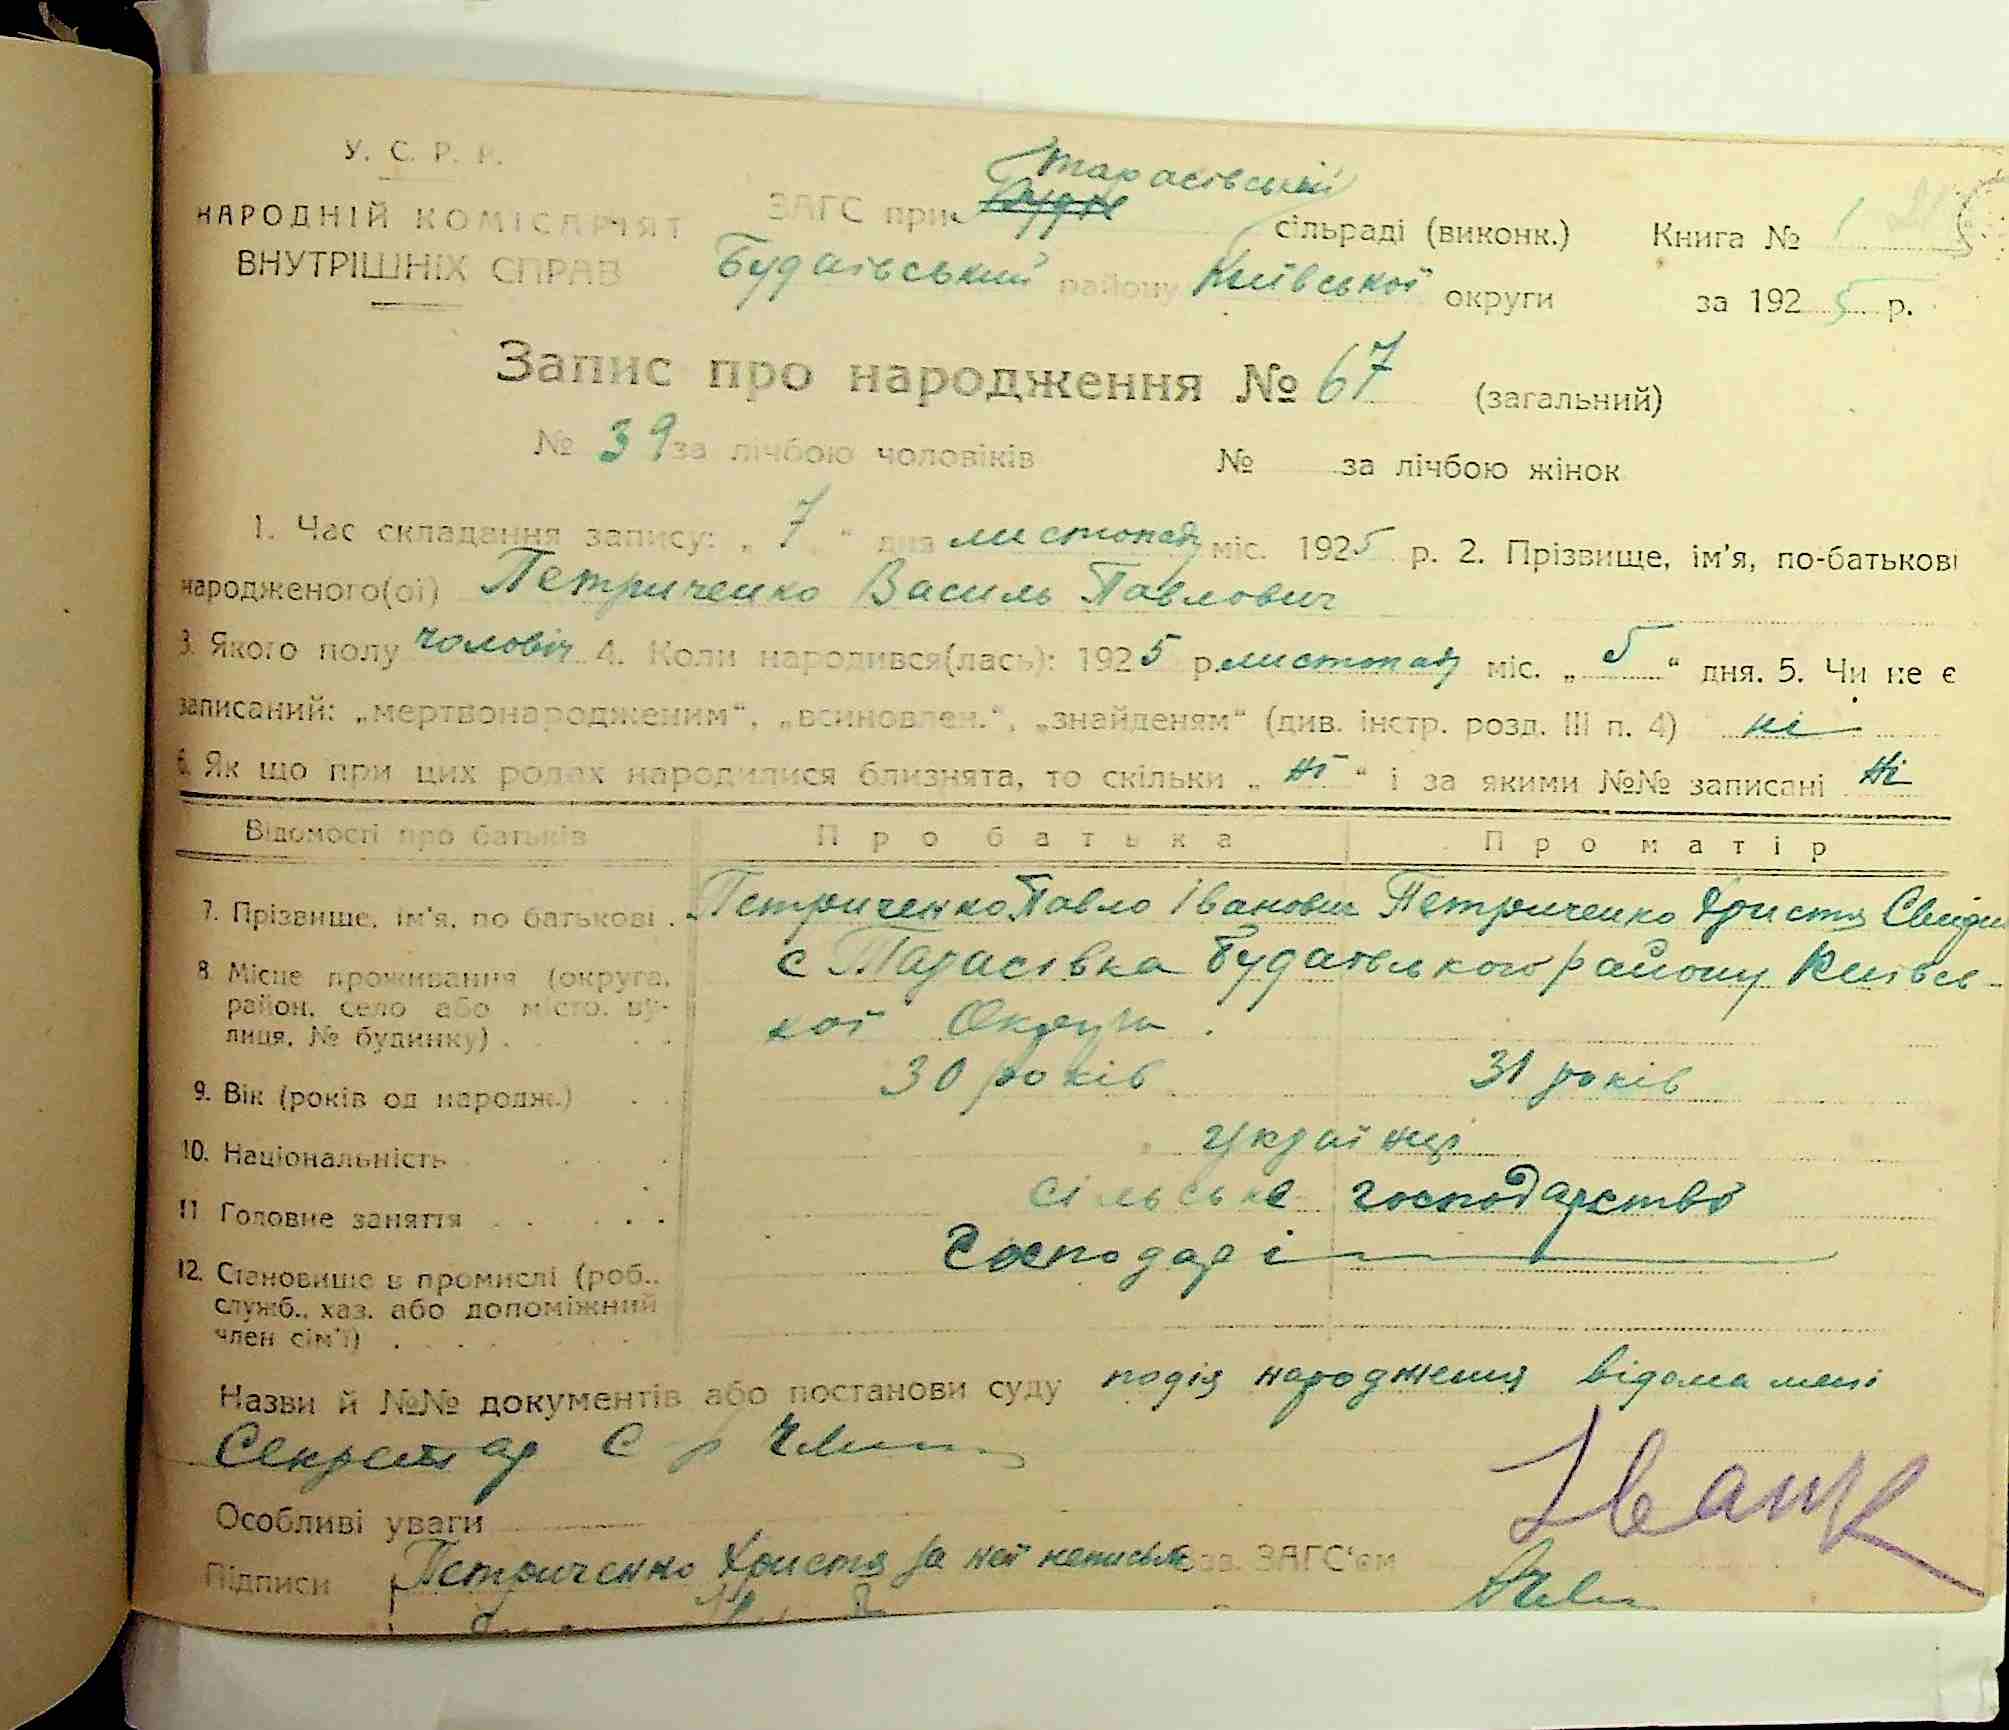 У. С. Р. Р.
НАРОДНІЙ КОМІСАРІЯТ
ВНУТРІШНІХ СПРАВ
ЗАГС при Тарасівській сільраді (виконк.)
Будаївський району Київської округи
Книга № 1
за 1925 р.
Запис про народження № 67 (загальний)
№ 39 за лічбою чоловіків № за лічбою жінок
1. Час складання запису: „ 7 “ дня листопад міс. 1925 р. 2. Прізвище, ім'я, по-батькові
народженого(ої) Петриченко Василь Павлович
3. Якого полу чоловіч 4. Коли народився(лась): 1925 р. листопад міс. „ 5 “ дня. 5. Чи не є
записаний: „мертвонародженим“, „всиновлен.“, „знайденям“ (див. інстр. розд. III п. 4) ні
6. Як що при цих родах народилися близнята, то скільки „ ні “ і за якими №№ записані ні
Відомості про батьків Про батька Про матір
7. Прізвище, ім'я, по батькові . Петриченко Павло Іванович Петриченко Христя
8. Місце проживання (округа, район, село або місто, ву-
лиця, № будинку) . . .
с Тарасівка Будаївського району Київсь-
кої Округи .
9. Вік (років од народж.) . . 30 років 31 років
10. Національність . . . . українці
11 Головне заняття . . . . сільське господарство
12. Становище в промислі (роб.,
служб., хаз. або допоміжний
член сім'ї) . . . . .
Господарі
Назви й №№ документів або постанови суду подія народження відома мені
Секретар С р
Особливі уваги
Підписи Петриченко Христя за неї неписьм Зав. ЗАГС'ом